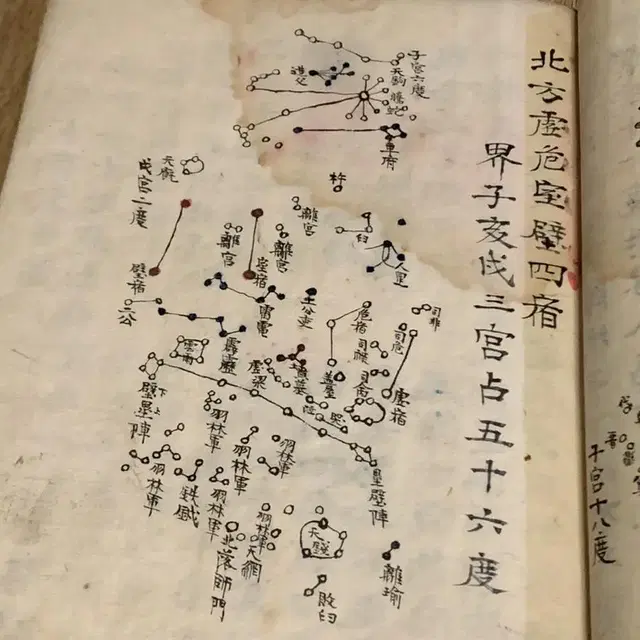 北方虛危室壁四宿
界子亥戌三宮占五十六度
子宮六度
天鉤
造父
螣蛇
車府
杵
臼
人星
天廐
戌宮二度
離宮
離宮
離宮
室宿
壁宿
土公
雷電
土公吏
危宿
司非
司危
司祿
司命
虛宿
霹靂
雲雨
虛梁
墳墓
蓋屋
哭
泣
壁壘陣
上
下
羽林軍
羽林軍
羽林軍
羽林軍
羽林軍
羽林軍
鈇鉞
北落師門
天網
天錢
皇壁陣
離瑜
敗臼
子宮十八度